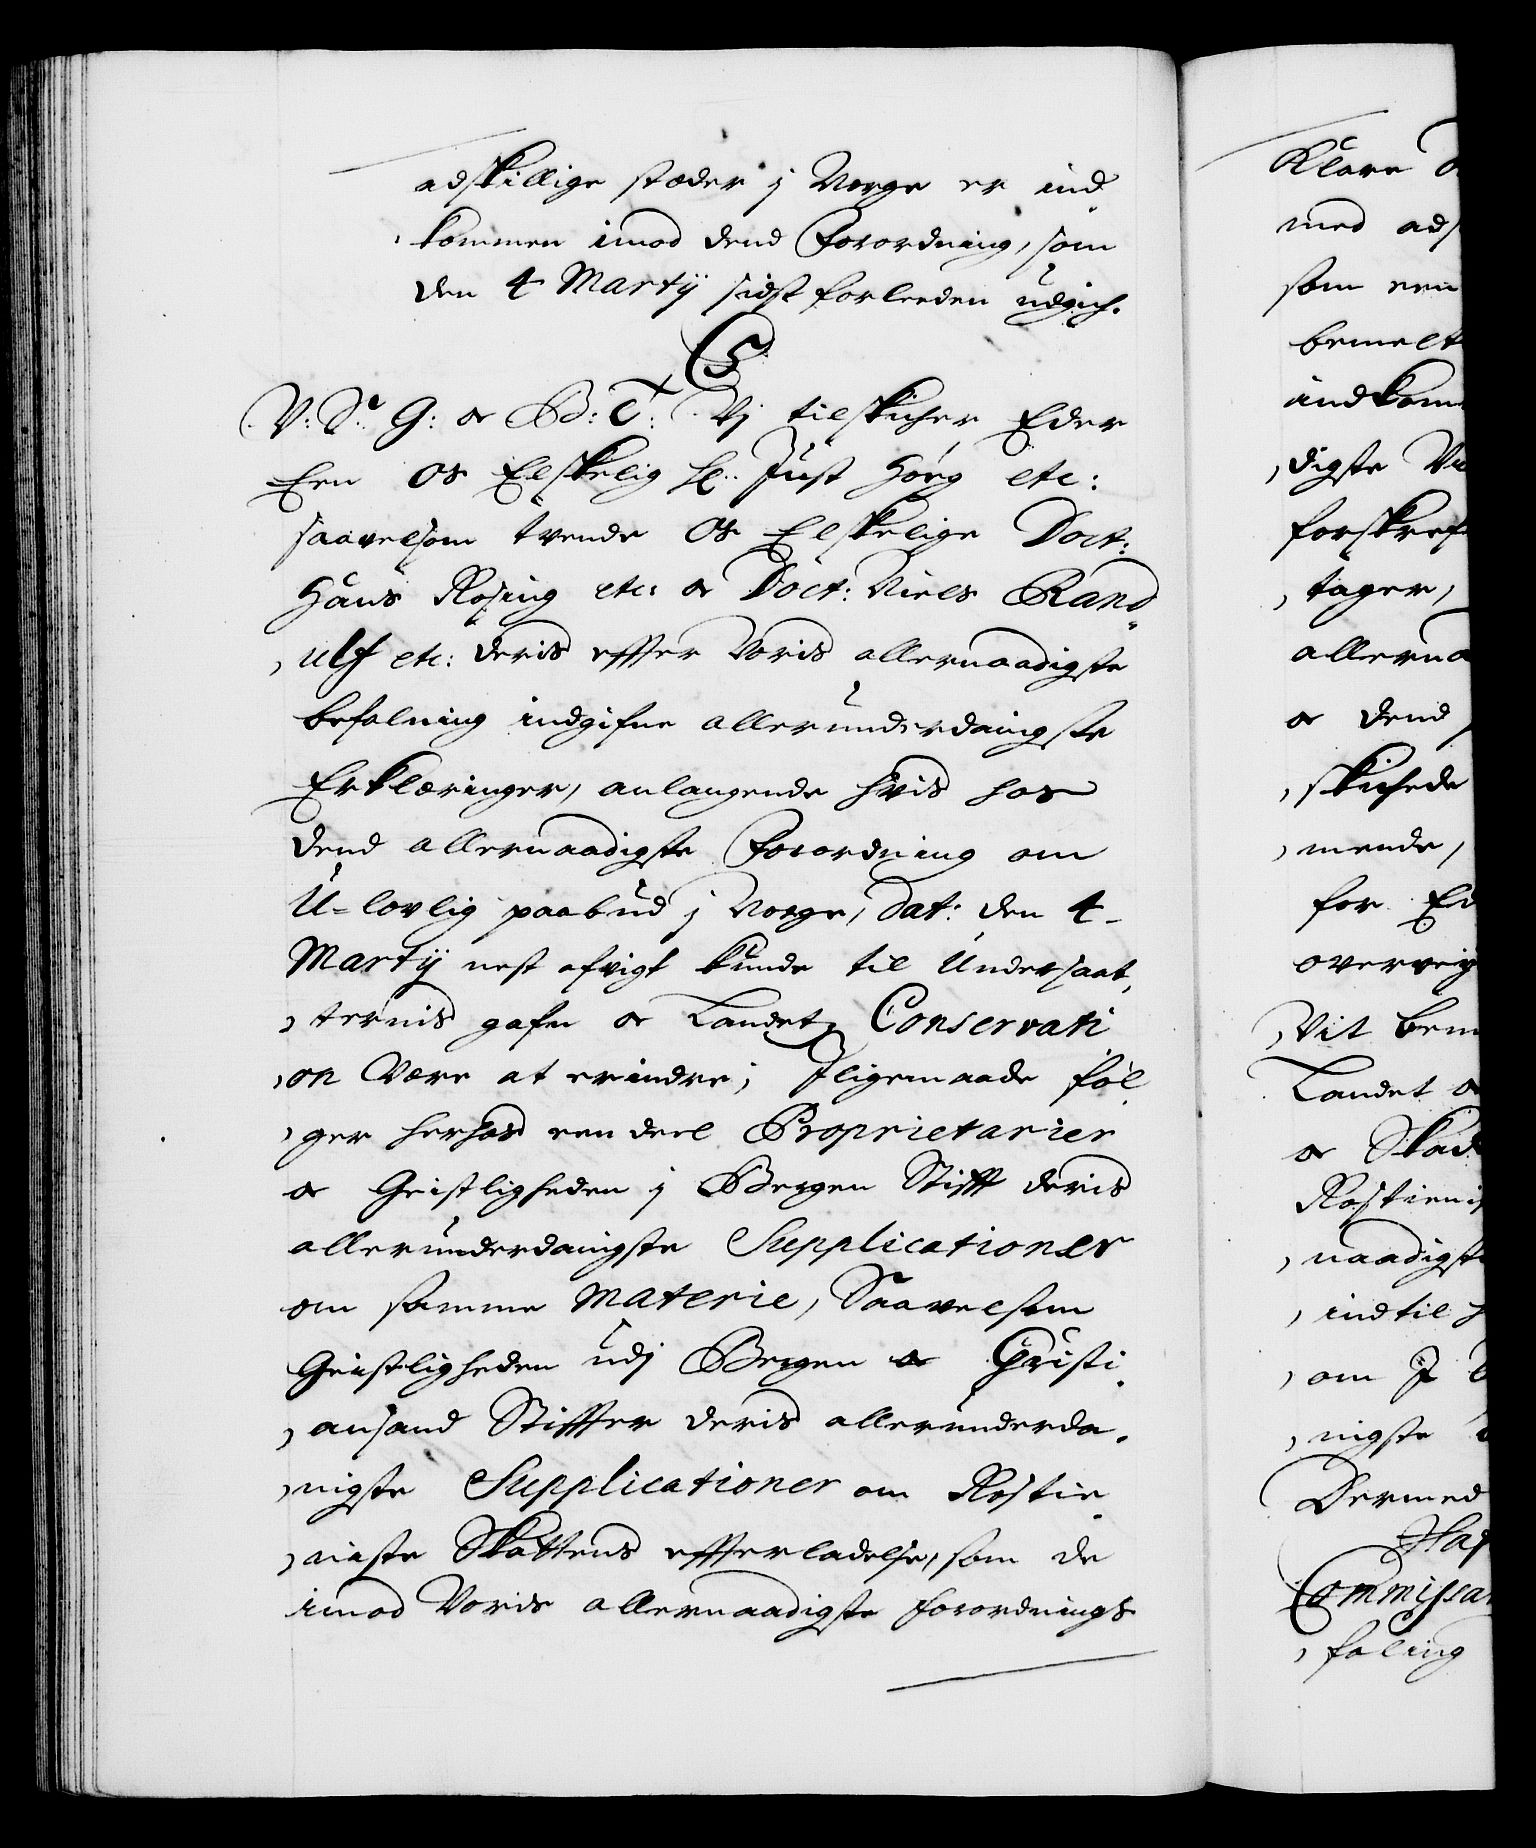 adskillige stæder j Norge er ind-
kommen imod dend Forordning, som
den 4 Martij sidst forleeden udgich.
C5
V: S: G: oc B: T: Vj tilskicher Eder
Hen Os Elskelig H. Just Høeg etc:
saavelsom tvende Os Elskelige Doct:
Hans Rosing etc: oc Doct: Niels Rand-
ulf etc: deris effter Voris allernaadigste
befalning indgifne allerunderdanigste
Erklæringer, anlangende hvis hos
dend allernaadigste Forordning om
U=lovlig paabud j Norge, dat: den 4
Martij nest afvigt kunde til Undersaat-
ternis gafn oc Landetz Conservati
on Være at erindre; Jligemaade føl-
ger herhos een deel Proprietarier
oc Geistligheden j Bergen Stifft deris
allerunderdanigste Supplicationer
om samme Materie, Saavelsom
Geistligheden udj Bergen oc Christi-
ansand Stiffter deris allerunderda-
nigste Supplicationer om Rostie-
niste Skattens effterladelse, som de
imod Voris allernaadigste forordnings
Klare
med ads
som een
bemelt
indkom
digste
forskref
tager,
allerna
oc dend
skichede
mende,
for
overvey
Vit bem
Landet
oc Skad
Rostieni
naadigst
indtil
om J
nigste
Dermed
Haf
Commissar
faling